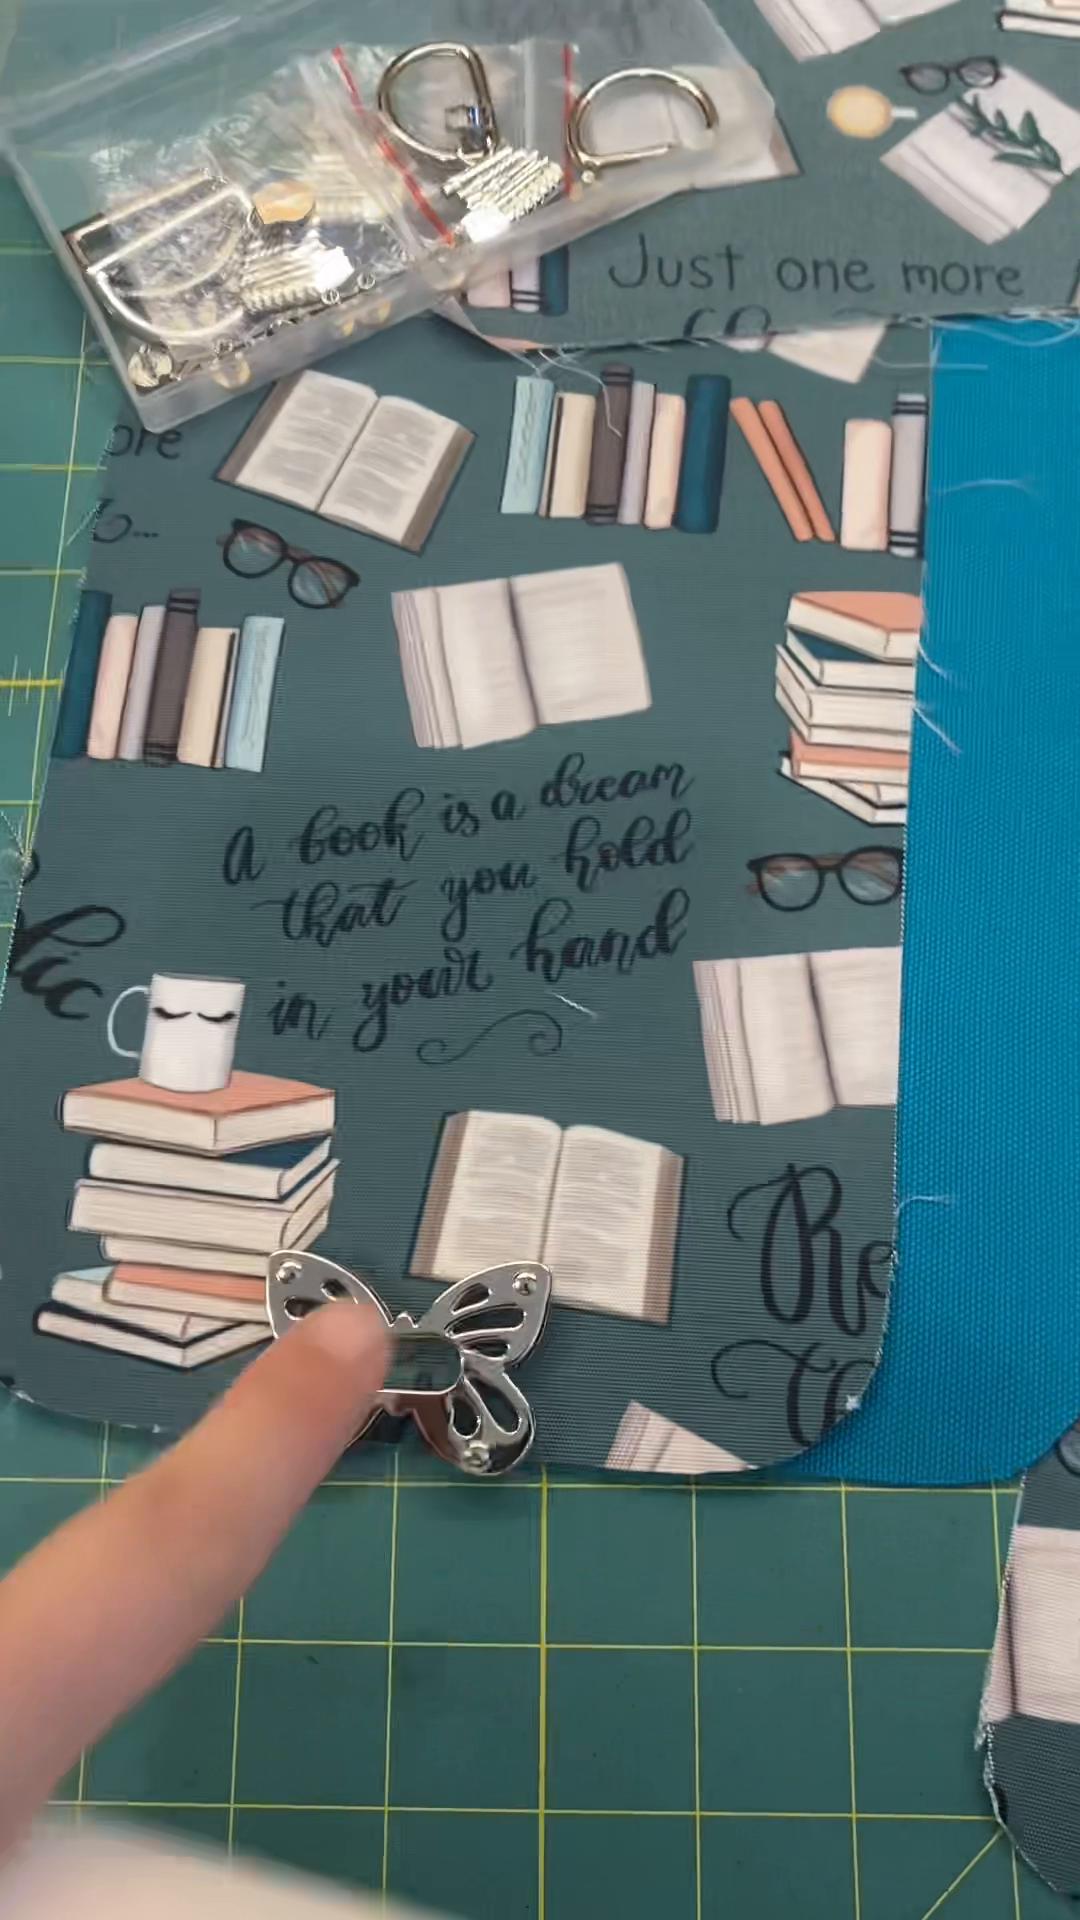 Just one more
ore
to...
A book is a dream
that you hold
in your hand
Re